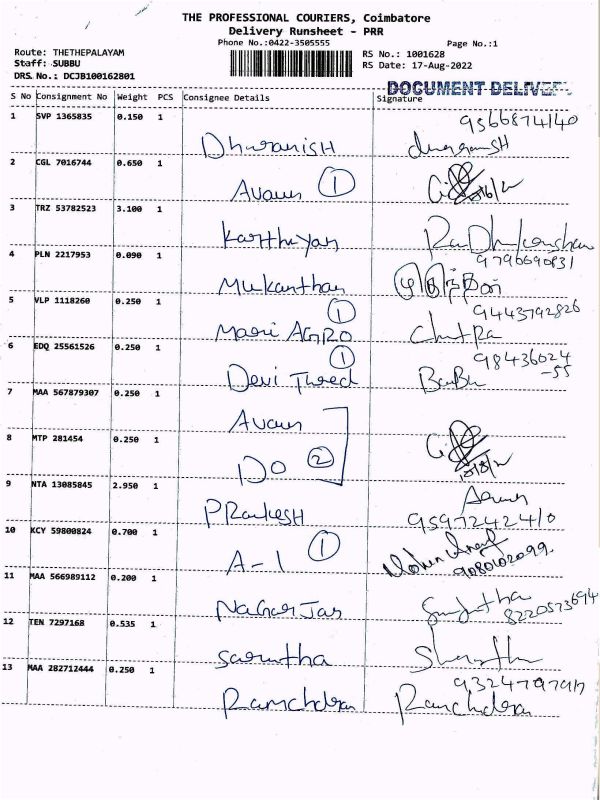 THE PROFESSIONAL COURIERS, Coimbatore
Delivery Runsheet - PRR
Phone No.:0422-3505555
Page No.:1
Route: THETHEPALAYAM
Staff: SUBBU
DRS No.: DCJB100162801
RS No.: 1001628
RS Date: 17-Aug-2022
DOCUMENT DELIVERY
S No Consignment No Weight PCS Consignee Details Signature
1 SVP 1365835 0.150 1
Dhuranish
2 CGL 7016744 0.650 1
Avaun 1
3 TRZ 53782523 3.100 1
Kartheyan
4 PLN 2217953 0.090 1
9796690831
Mukanthan
5 VLP 1118260 0.250 1
1 9443792826
Maari AGRO Chitra
6 EDQ 25561526 0.250 1
1 98436024
-55
Devi Thred Babu
7 MAA 567879307 0.250 1
Avaun
8 MTP 281454 0.250 1
DO 2
9 NTA 13085845 2.950 1
PRakesH 9597242410
10 KCY 59800824 0.700 1
A-1 1
9080102099
11 MAA 566989112 0.200 1
NagarJan Sujatha
8220573694
12 TEN 7297168 0.535 1
Sarutha
13 MAA 282712444 0.250 1
Ramchdran Ramchdran